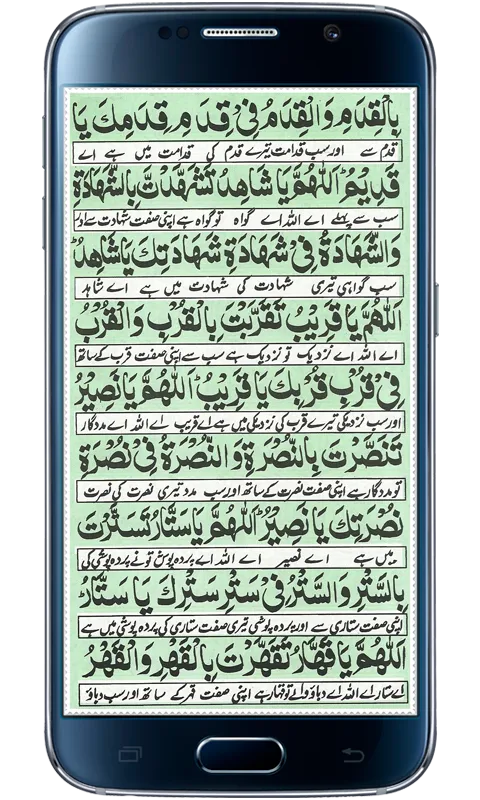 بِالْقِدَمِ وَالْقِدَمُ فِیْ قِدَمِ قِدَمِكَ یَا
قدم سے اور سب قدامت تیرے قدم کی قدامت میں ہے اے
قَدِیْمُ اَللّٰهُمَّ یَا شَاهِدُ تَشَهَّدْتَّ بِالشَّهَادَةِ
سب سے پہلے اے اللہ اے گواہ تو گواہ ہے اپنی صفت شہادت سے اور
وَالشَّهَادَةُ فِیْ شَهَادَةِ شَهَادَتِكَ یَا شَاهِدُ
سب گواہی تیری شہادت کی شہادت میں ہے اے شاہد
اَللّٰهُمَّ یَا قَرِیْبُ تَقَرَّبْتَ بِالْقُرْبِ وَالْقُرْبُ
اے اللہ اے نزدیک تو نزدیک ہے سب سے اپنی صفت قرب کے ساتھ
فِیْ قُرْبِ قُرْبِكَ یَا قَرِیْبُ اَللّٰهُمَّ یَا نَصِیْرُ
اور سب نزدیکی تیرے قرب کی نزدیکی میں ہے اے قریب اے اللہ اے مددگار
تَنَصَّرْتَ بِالنُّصْرَةِ وَ النُّصْرَةُ فِیْ نُصْرَةِ
تو مددگار ہے اپنی صفت نصرت کے ساتھ اور سب مدد تیری نصرت کی نصرت
نُصْرَتِكَ یَا نَصِیْرُ اَللّٰهُمَّ یَا سَتَّارُ تَسَتَّرْتَ
میں ہے اے نصیر اے اللہ اے پردہ پوش تو نے پردہ پوشی کی
بِالسَّتْرِ وَالسَّتْرُ فِیْ سَتْرِ سَتْرِكَ یَا سَتَّارُ
اپنی صفت ستاری سے اور پردہ پوشی تیری صفت ستاری کی پردہ پوشی میں ہے
اَللّٰهُمَّ یَا قَهَّارُ تَقَهَّرْتَ بِالْقَهْرِ وَالْقَهْرُ
اے ستار اے اللہ اے دباؤ والے تو قہار ہے اپنی صفت قہر کے ساتھ اور سب دباؤ